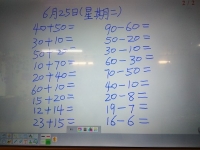 6月25日(星期二)
40+50= 90-60=
30+10= 50-20=
50+ = 30-10=
10+70= 60-30=
20+40= 70-50=
60+10= 40-10=
15+20= 20-8=
12+14= 19-7=
23+15= 16-6=